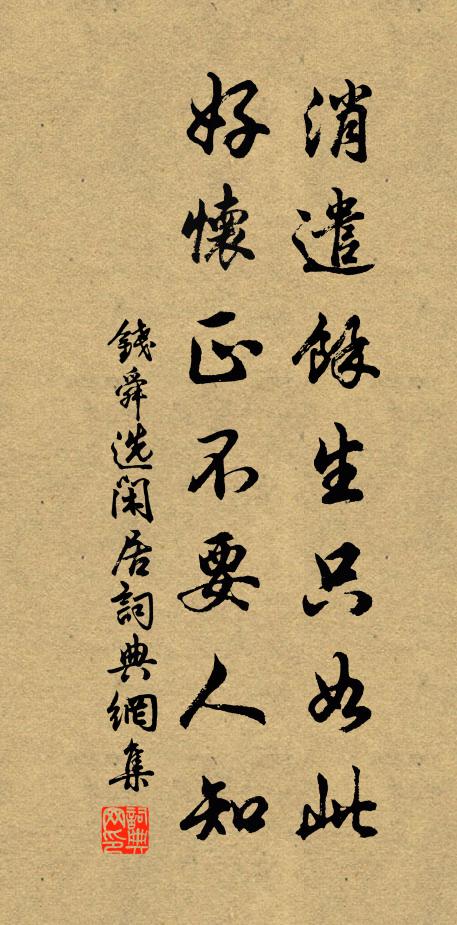 消遣餘生只如此
好懷正不要人知
錢舜选閑居詞典網集
詞典网印